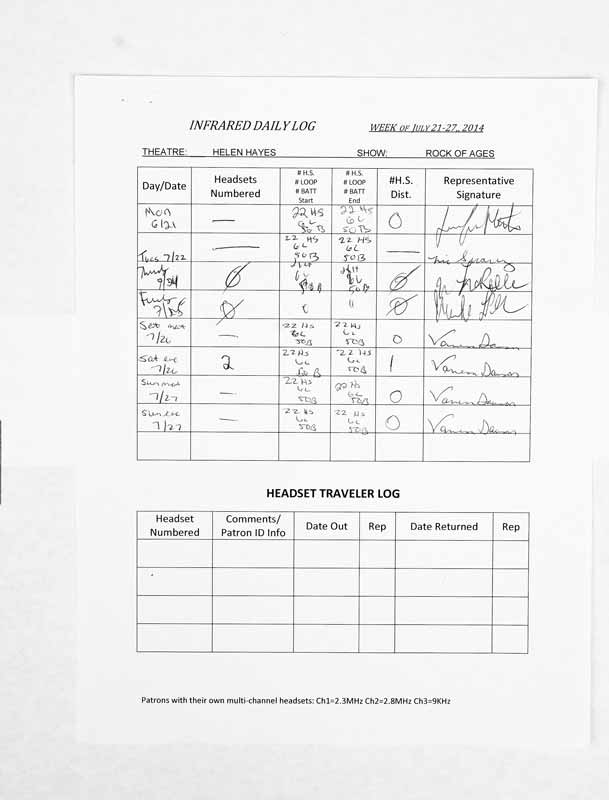 INFRARED DAILY LOG WEEK OF JULY 21-27, 2014
THEATRE: HELEN HAYES SHOW: ROCK OF AGES
Day/Date
Headsets
Numbered
# H.S.
# LOOP
# BATT
Start
# H.S.
# LOOP
# BATT
End
#H.S.
Dist.
Representative
Signature
Mon
6/21
—
22 HS
6L
50B
22 HS
6L
50B
0
Tues 7/22
—
22 HS
6L
50B
22 HS
6L
50B
—
Thurs
9/24
Ø
6L
6L
50B
Ø
7/25
Ø
"
Ø
Sat mat
7/26
—
22 HS
6L
50B
22 HS
6L
50B
0
Sat eve
7/26
2
22 HS
6L
50B
22 HS
6L
50B
1
Sun mat
7/27
—
22 HS
6L
50B
22 HS
6L
50B
0
Sun eve
7/27
—
22 HS
6L
50B
22 HS
6L
50B
0
HEADSET TRAVELER LOG
Headset
Numbered
Comments/
Patron ID Info
Date Out
Rep
Date Returned
Rep
Patrons with their own multi-channel headsets: Ch1=2.3MHz Ch2=2.8MHz Ch3=9KHz